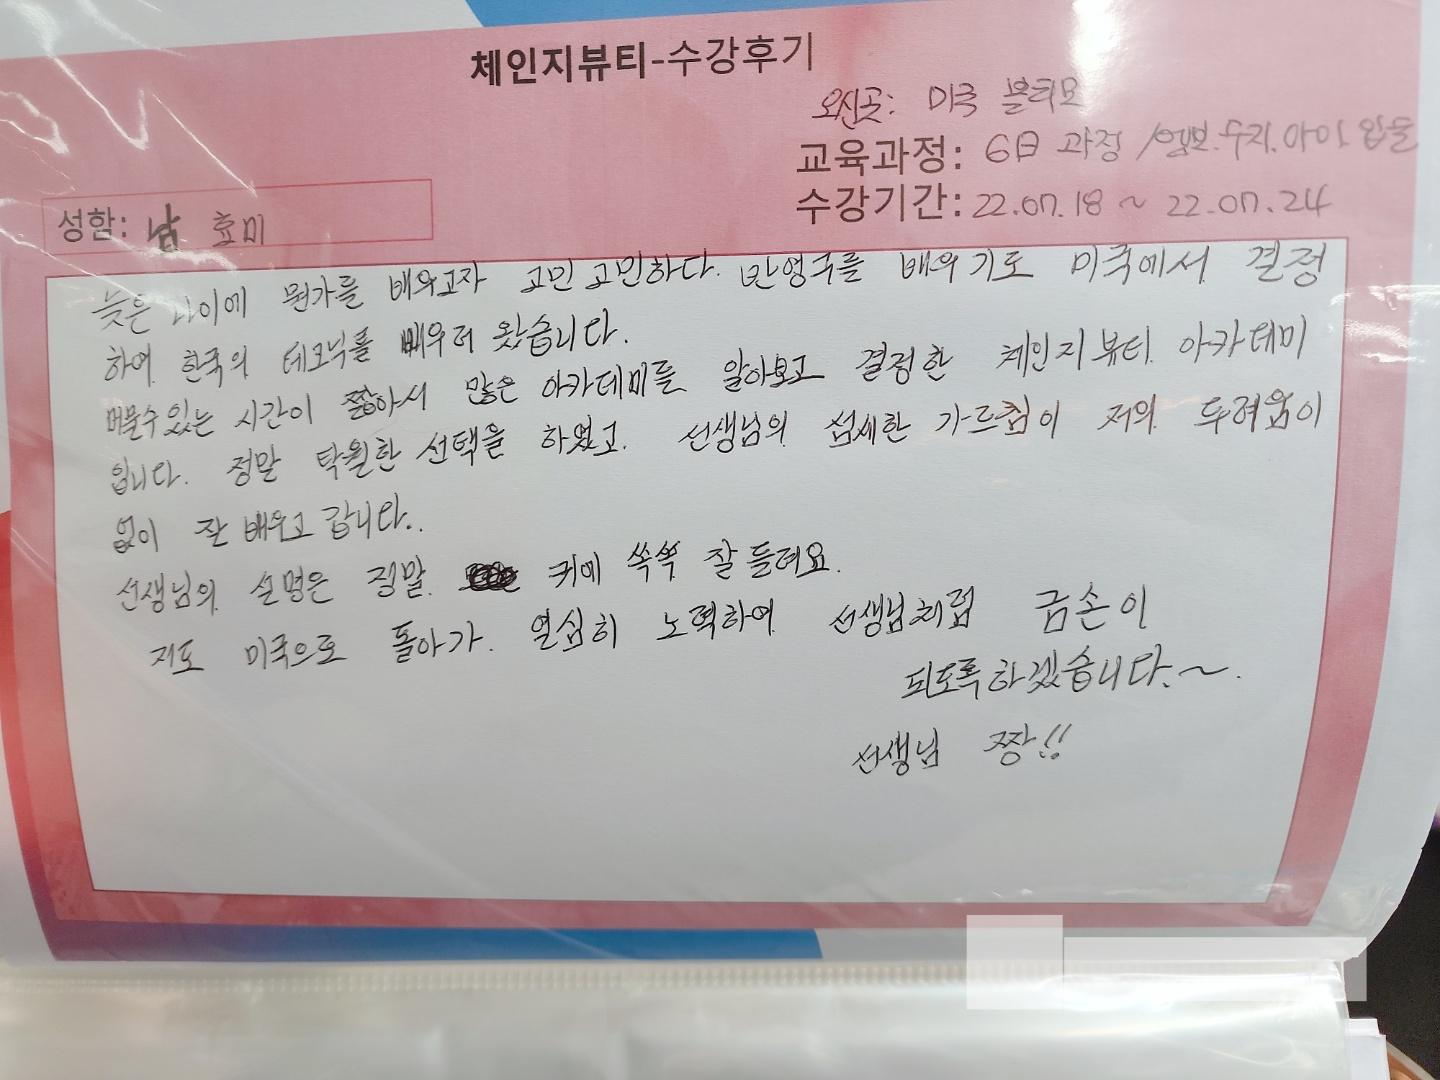 체인지뷰티-수강후기
오신곳: 미국 볼티모
교육과정: 6日 과정 /엠보.수지.아이.입술
수강기간: 22.07.18 ~ 22.07.24
성함: 남 효미
늦은 나이에 뭔가를 배우고자 고민 고민하다. 반영구를 배우기로 미국에서 결정
하여 한국의 테크닉를 배우러 왔습니다.
머물수있는 시간이 짧아서 많은 아카데미를 알아보고 결정한 체인지뷰티 아카데미
입니다. 정말 탁월한 선택을 하였고. 선생님의 섬세한 가르침이 저의 두려움이
없이 잘 배우고 갑니다..
선생님의 설명은 정말 귀에 쏙쏙 잘 들려요.
저도 미국으로 돌아가. 열심히 노력하여 선생님처럼 금손이
되도록하겠습니다.~.
선생님 짱!!